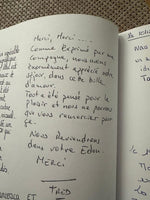 Merci, Merci.....
Comme Exprimé par ma
Compagne, nous avons
Enormément apprécié notre
séjour, dans cette bulle
d'amour.
Tout a été pensé pour le
Plaisir et nous ne pouvons
que vous remercier pour
ça.
Nous Reviendrons
dans votre Eden.
MERCI